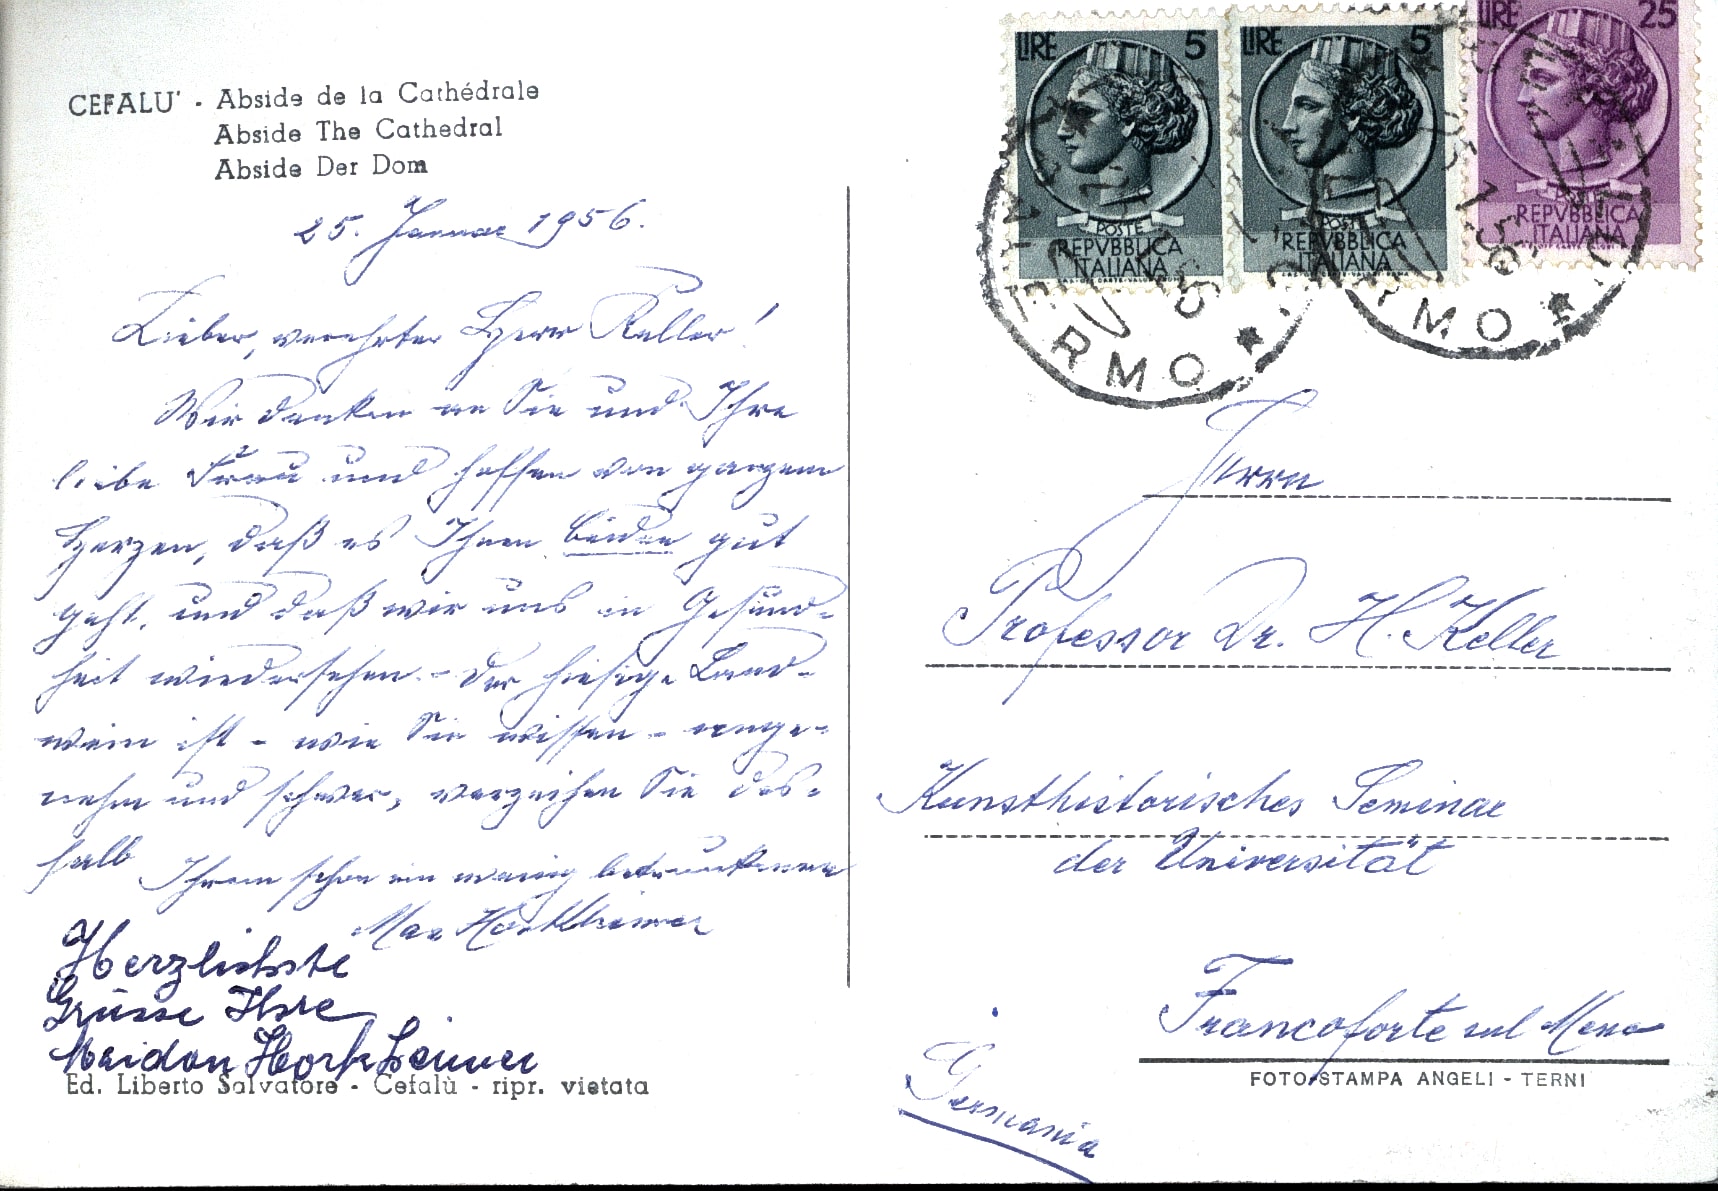 CEFALU' - Abside de la Cathédrale
Abside The Cathedral
Abside Der Dom
25. Januar 1956.
Lieber, verehrter Herr Keller!
Wir denken an Sie und Ihre
liebe Frau und hoffen von ganzem
Herzen, daß es Ihnen beiden gut
geht, und daß wir uns in Gesund-
heit wiedersehen. - Der hiesige Land-
wein ist - wie Sie wissen - ange-
nehm und schwer, verzeihen Sie des-
halb
Ihrem schon ein wenig betrunkenen
Max Horkheimer
Herzlichste
Grüsse Ihre
Maidon Horkheimer
Ed. Liberto Salvatore - Cefalù - ripr. vietata
LIRE 5
POSTE
REPVBBLICA
ITALIANA
LIRE 5
POSTE
REPVBBLICA
ITALIANA
LIRE 25
REPVBBLICA
ITALIANA
ERMO
RMO
Herrn
Professor Dr. H. Keller
Kunsthistorisches Seminar
der Universität
Francoforte sul Meno
Germania
FOTO-STAMPA ANGELI - TERNI